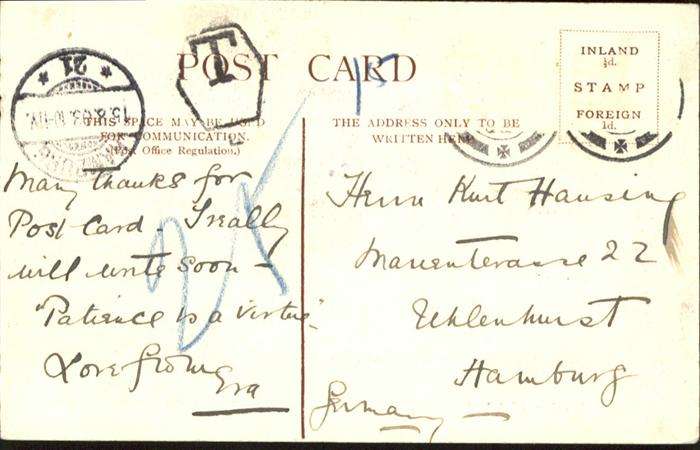 POST CARD
T
INLAND
½d.
STAMP
FOREIGN
1d.
THIS SPACE MAY BE USED
FOR COMMUNICATION.
(Post Office Regulation.)
THE ADDRESS ONLY TO BE
WRITTEN HERE
21
Many thanks for
Post Card. I really
will write soon -
"Patience is a virtue".
Love from
Eva
Herrn Kurt Hansing
22
Uhlenhurst
Hamburg
Germany